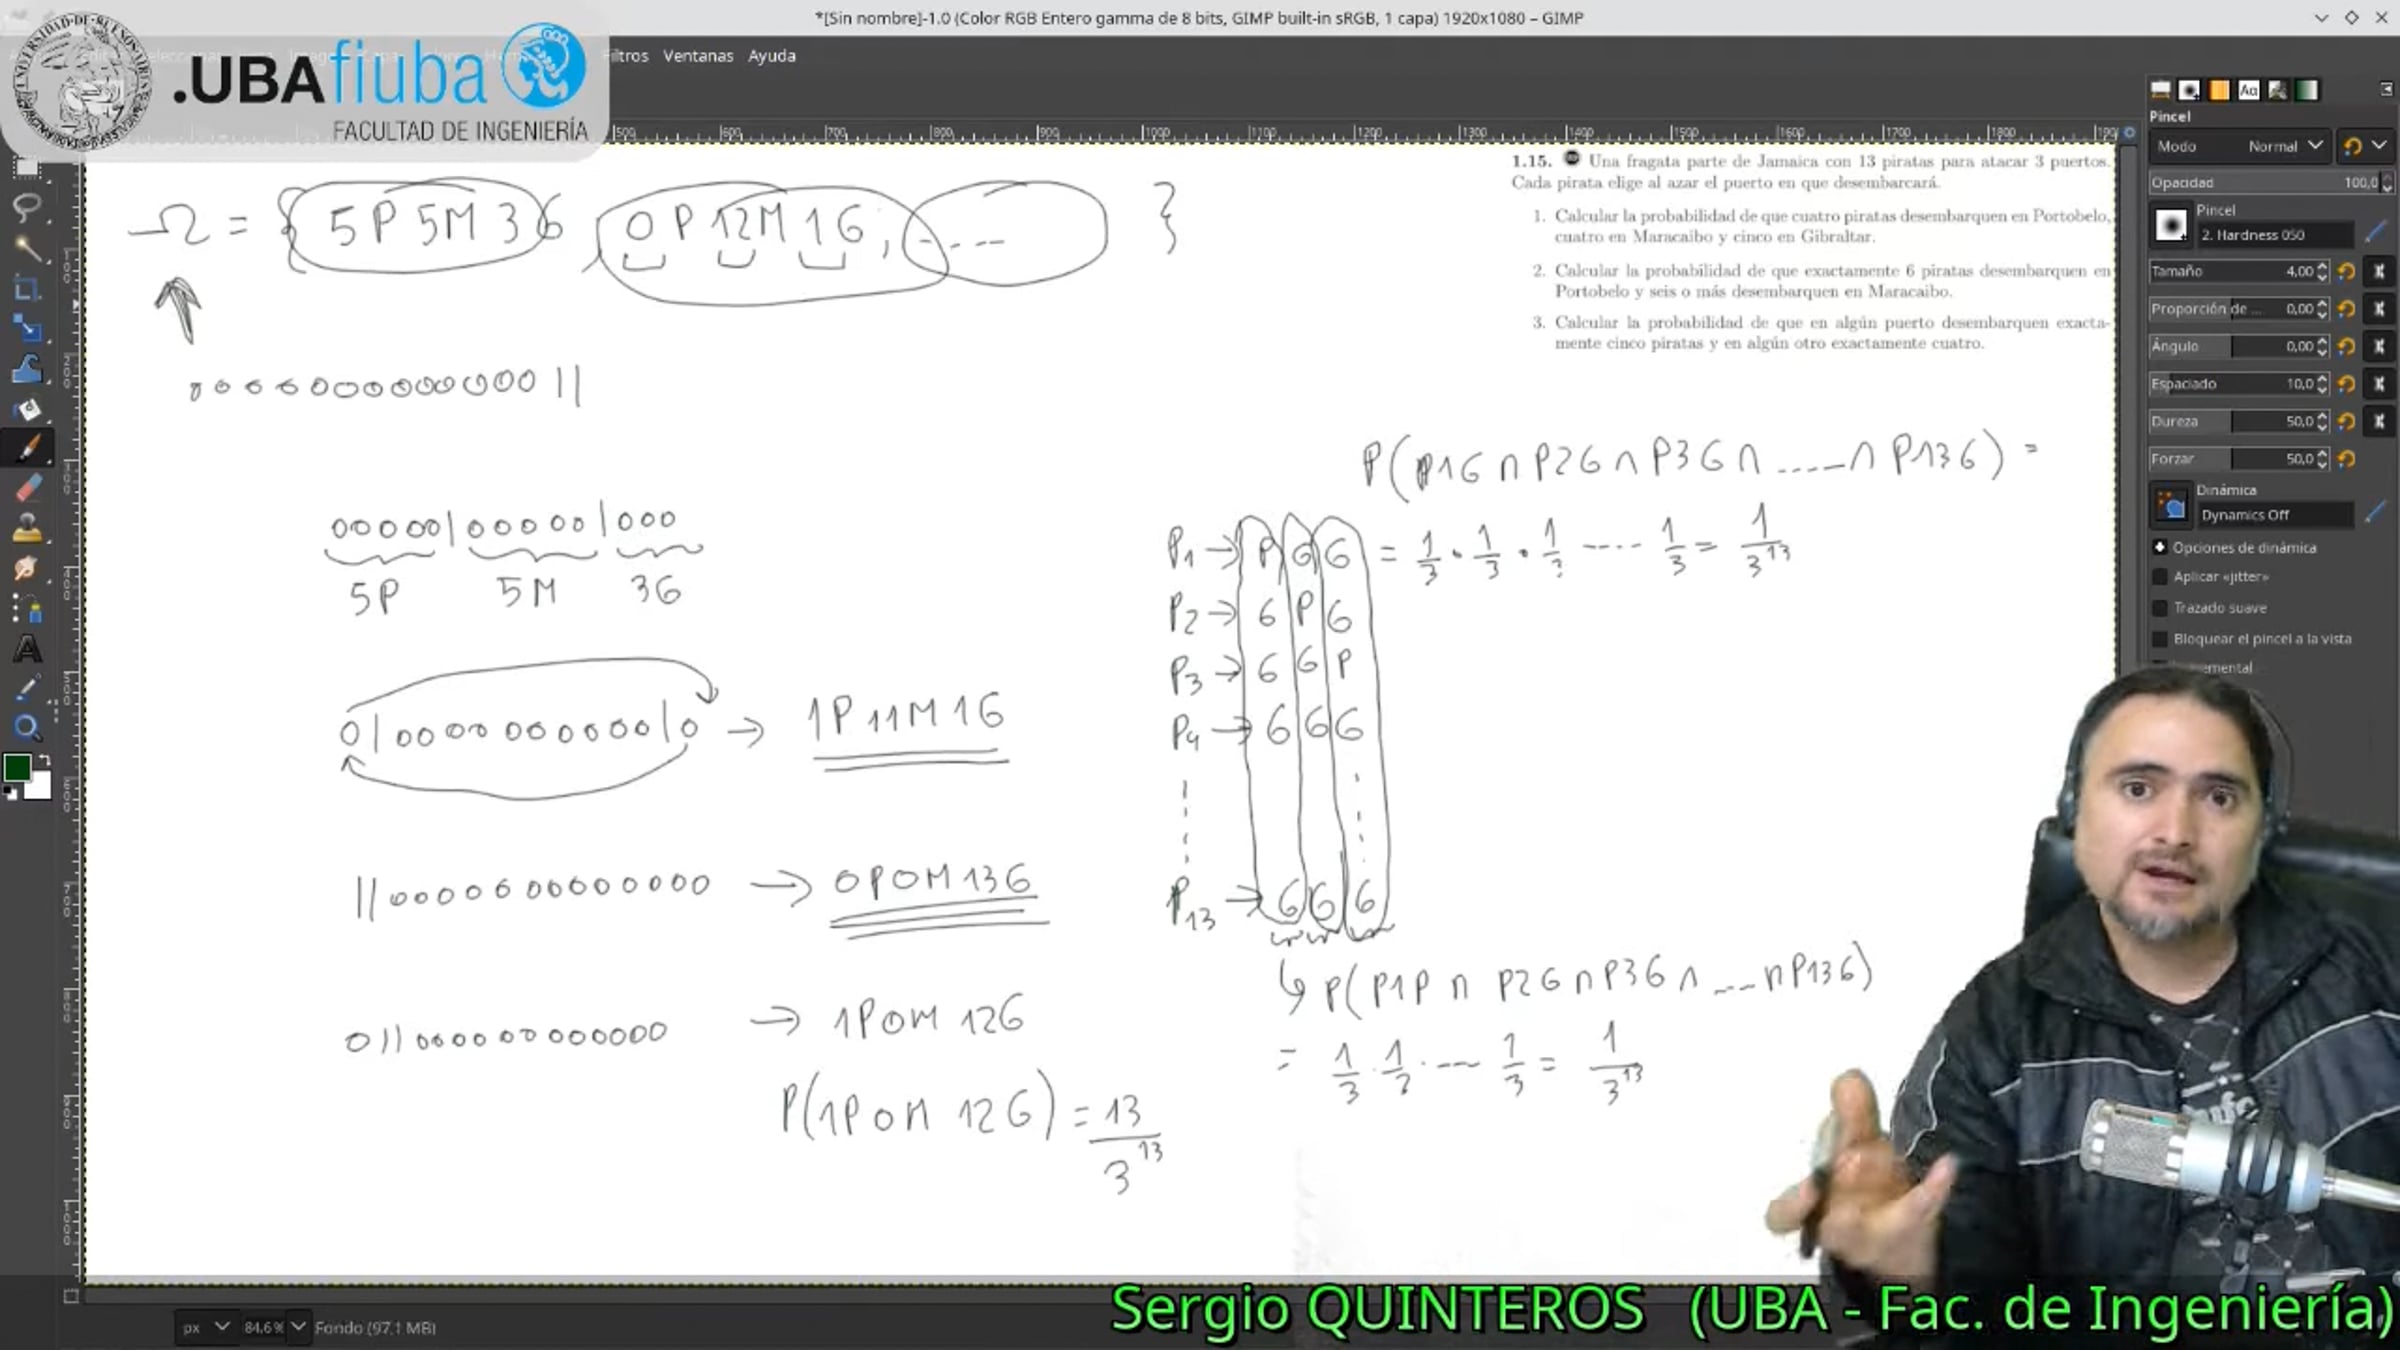 *[Sin nombre]-1.0 (Color RGB Entero gamma de 8 bits, GIMP built-in sRGB, 1 capa) 1920x1080 – GIMP
Filtros Ventanas Ayuda
.UBAfiuba
FACULTAD DE INGENIERÍA
Ω = { 5P 5M 3G , 0P 12M 1G , ---- }
0000000000000||
00000|00000|000
5P 5M 3G
0|00000000000|0 → 1P 11M 1G
||0000000000000 → 0P0M 13G
0||000000000000 → 1P0M 12G
P(1P 0M 12G) = 13
3^13
1.15. Una fragata parte de Jamaica con 13 piratas para atacar 3 puertos.
Cada pirata elige al azar el puerto en que desembarcará.
1. Calcular la probabilidad de que cuatro piratas desembarquen en Portobelo,
cuatro en Maracaibo y cinco en Gibraltar.
2. Calcular la probabilidad de que exactamente 6 piratas desembarquen en
Portobelo y seis o más desembarquen en Maracaibo.
3. Calcular la probabilidad de que en algún puerto desembarquen exacta-
mente cinco piratas y en algún otro exactamente cuatro.
P(P1G ∩ P2G ∩ P3G ∩ ....... ∩ P13G) =
= 1/3 · 1/3 · 1/3 ---- 1/3 = 1/3^13
P1 → P G G
P2 → G P G
P3 → G G P
P4 → G G G
P13 → G G G
↳ P(P1P ∩ P2G ∩ P3G ∩ ---- ∩ P13G)
= 1/3 · 1/3 · --- 1/3 = 1/3^13
Pincel
Modo Normal
Opacidad 100,0
Pincel
2. Hardness 050
Tamaño 4,00
Proporción de ... 0,00
Ángulo 0,00
Espaciado 10,0
Dureza 50,0
Forzar 50,0
Dinámica
Dynamics Off
Opciones de dinámica
Aplicar «jitter»
Trazado suave
Bloquear el pincel a la vista
px 84,6% Fondo (97,1 MB)
Sergio QUINTEROS (UBA - Fac. de Ingeniería)